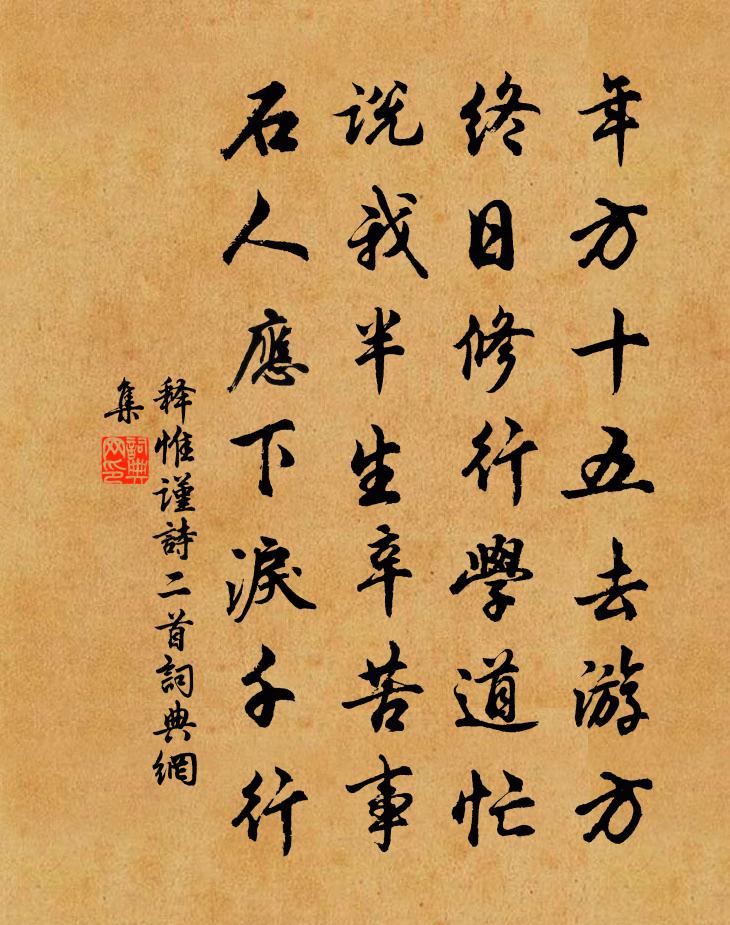 年方十五去游方
終日修行學道忙
説我半生辛苦事
石人應下淚千行
释惟谨詩二首詞典網
集
詞典網印